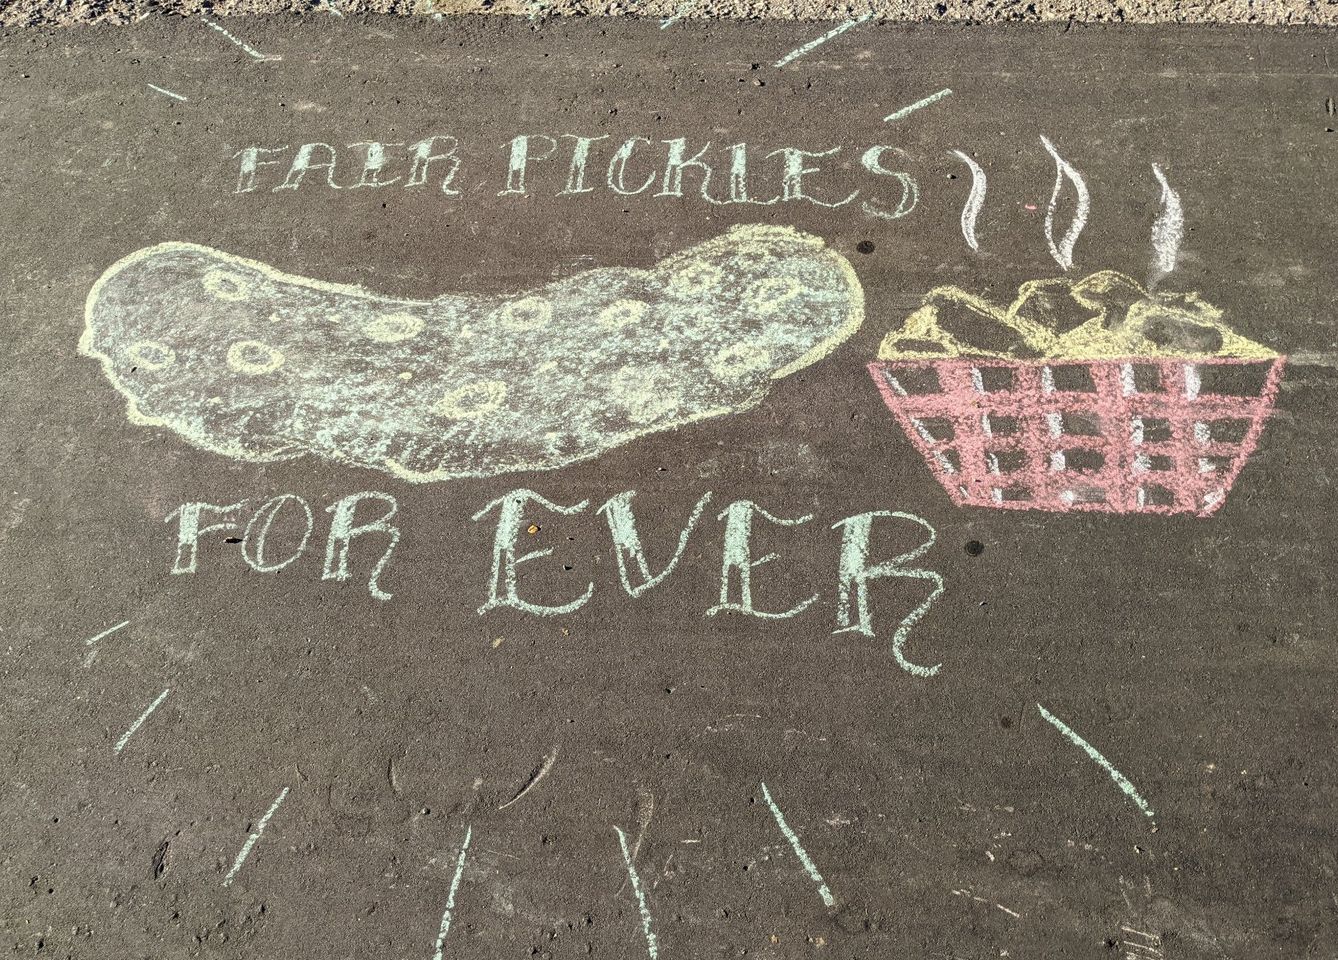 FAIR PICKLES
FOR EVER